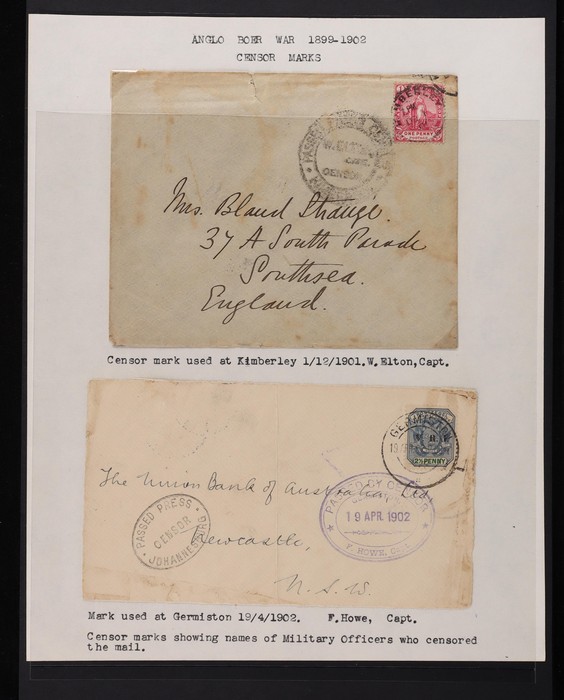 ANGLO BOER WAR 1899-1902
CENSOR MARKS
KIMBERLEY
ONE PENNY
PASSED
CENSOR
Mrs. Bland Strange.
37 A South Parade
Southsea.
England.
Censor mark used at Kimberley 1/12/1901.W.Elton,Capt.
GERMISTON
19
2½ PENNY
The Union Bank of Australia, Ltd
PASSED BY
19 APR. 1902
F. HOWE, CAPT.
PASSED PRESS
CENSOR
JOHANNESBURG
Newcastle,
N.S.W.
Mark used at Germiston 19/4/1902. F.Howe, Capt.
Censor marks showing names of Military Officers who censored
the mail.